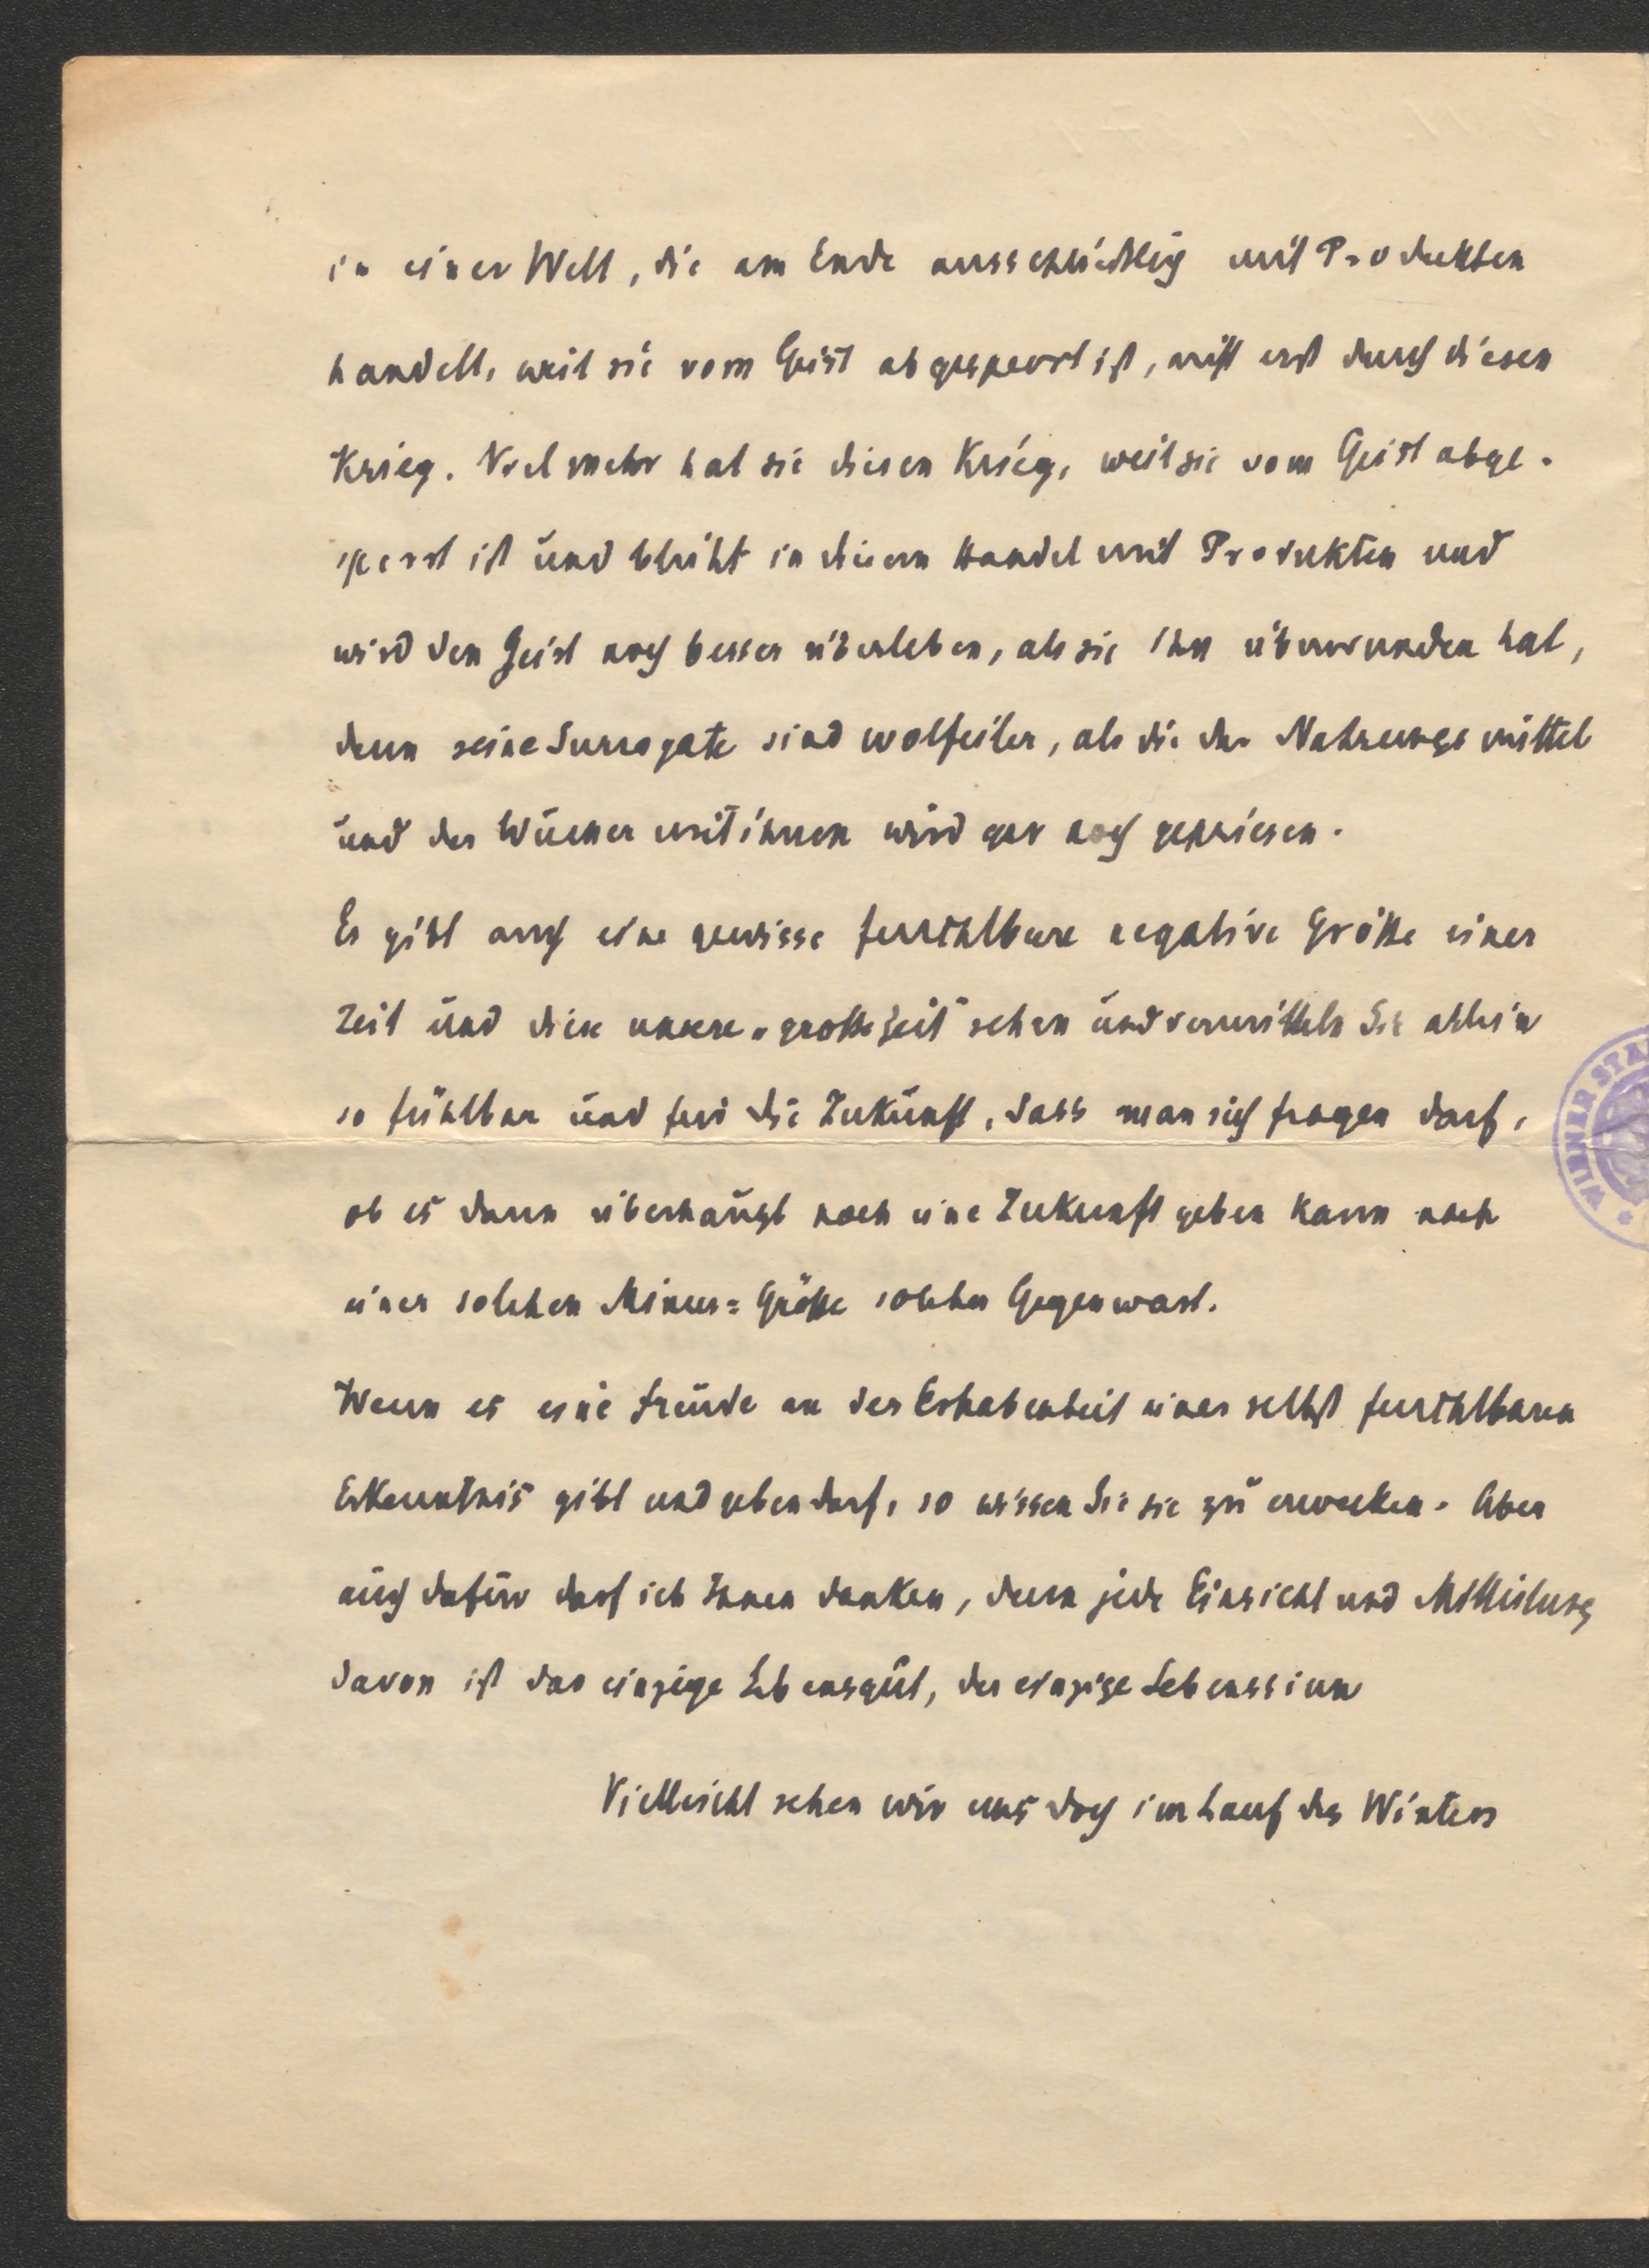 in einer Welt, die am Ende ausschließlich mit Produkten
handelt, weil sie vom Geist abgesperrt ist, nicht erst durch diesen
Krieg. Vielmehr hat sie diesen Krieg, weil sie vom Geist abge-
sperrt ist und bleibt in diesem Handel mit Produkten und
wird den Geist noch besser überleben, als sie ihn überwunden hat,
denn seine Surrogate sind wolfeiler, als die der Nahrungsmittel
und der Wucher mit ihnen wird gar noch gepriesen.
Es gibt auch eine gewisse furchtbare negative Größe einer
Zeit und diese unsere „große Zeit" sehen und vermitteln Sie allein
so fühlbar und für die Zukunft, dass man sich fragen darf,
ob es dann überhaupt noch eine Zukunft geben kann nach
einer solchen Minus=Größe solcher Gegenwart.
Wenn es eine Freude an der Erhabenheit einer selbst furchtbaren
Erkenntnis gibt und geben darf, so wissen Sie sie zu erwecken. Aber
auch dafür darf ich Ihnen danken, denn jede Einsicht und Mitteilung
davon ist das einzige Lebensgut, der einzige Lebenssinn
Vielleicht sehen wir uns doch im Lauf des Winters
WIENER STA